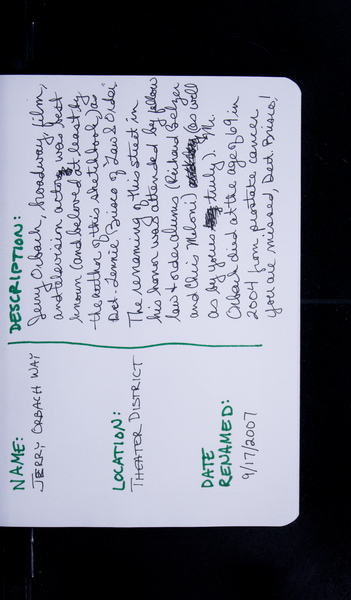 NAME:
JERRY ORBACH WAY
LOCATION:
THEATER DISTRICT
DATE
RENAMED:
9/17/2007
DESCRIPTION:
Jerry Orbach, broadway, film,
and television actor was best
known (and beloved at least by
the author of this sketchbook) as
Det. Lennie Brisco of Law & Order
The renaming of this street in
his honor was attended by fellow
law & order alumns (Richard Belzer
and Chris Meloni) (as well
as by yours truly). Mr.
Orbach died at the age of 69 in
2004 from prostate cancer.
You are missed, Det. Brisco!